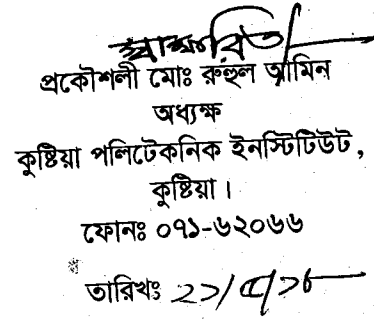 স্বাক্ষরিত/
প্রকৌশলী মোঃ রুহুল আমিন
অধ্যক্ষ
কুষ্টিয়া পলিটেকনিক ইনস্টিটিউট,
কুষ্টিয়া।
ফোনঃ ০৭১-৬২০৬৬
তারিখঃ